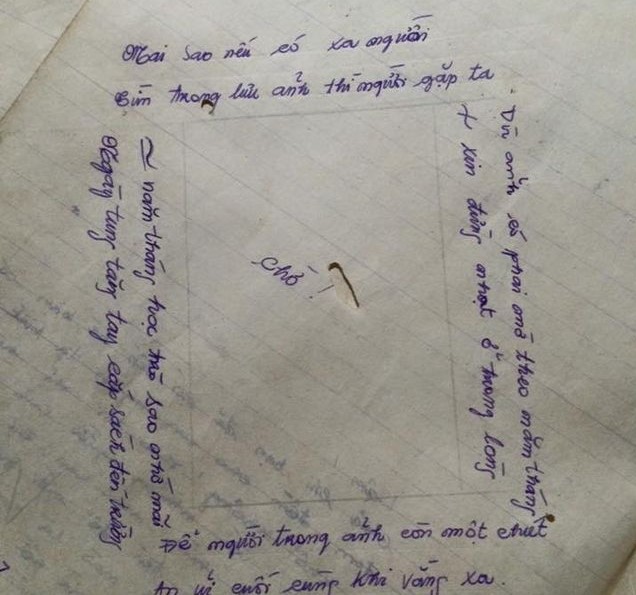 Mai sao nếu có xa người
Tìm trong lưu ảnh thì người gặp ta
Dù ảnh có phai mờ theo năm tháng
+ xin đừng nhạt ở trong lòng
chó !
~ năm tháng học trò sao nhớ mãi
Ngày tung tăng tay cắp sách đến trường
Để người trong ảnh còn một chút
An ủi cuối cùng khi vắng xa.